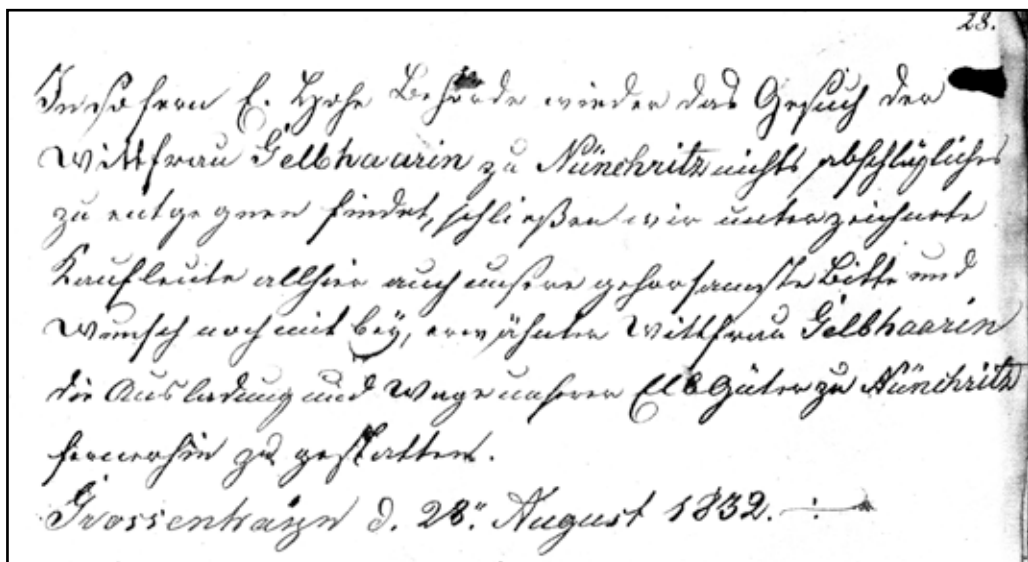 28.
In sofern E. Hohe Behörde wieder das Gesuch der
Wittfrau Gelbhaarin zu Nünchritz nichts abschlägliches
zu entgegnen findet, schließen wir unterzeichnete
Kaufleute allhier auch unsere gehorsamste Bitte und
Wunsch noch mit bey, erwähnter Wittfrau Gelbhaarin
die Ausladung und Wage unserer Elb Güter zu Nünchritz
fernerhin zu gestatten.
Grossenhayn d. 28. August 1832.